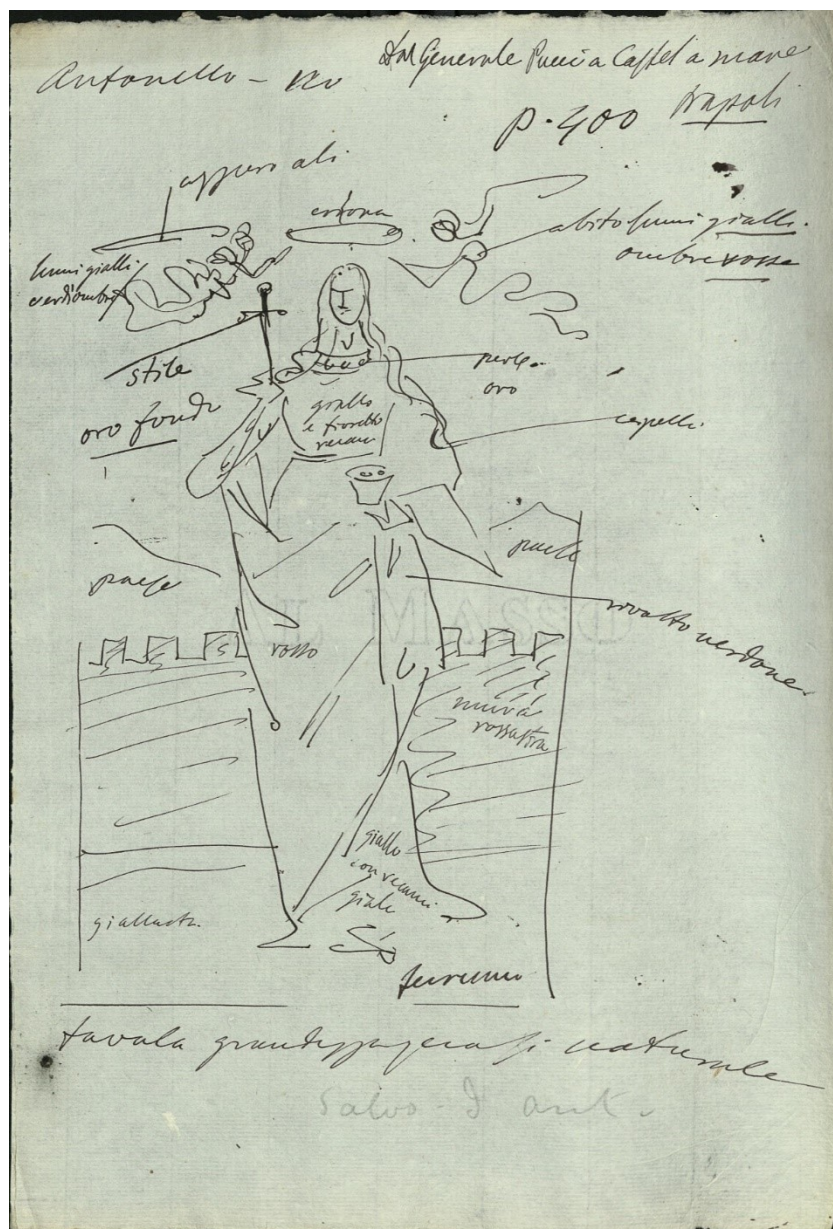 Antonello - no
Dal Generale Pucci a Castel a mare
p. 400 Napoli
azzurri ali
corona
abito lumi gialli
ombre rosse
lumi gialli
verdi ombre
stile
oro fondo
perle
oro
giallo
e fioretto
capelli
paese
paese
rovatto verdone
AL MASSO
rosso
mura
rossastra
giallo
con recami
giale
giallastr.
terreno
tavola grandezza quasi naturale
Salvo d'Ant.